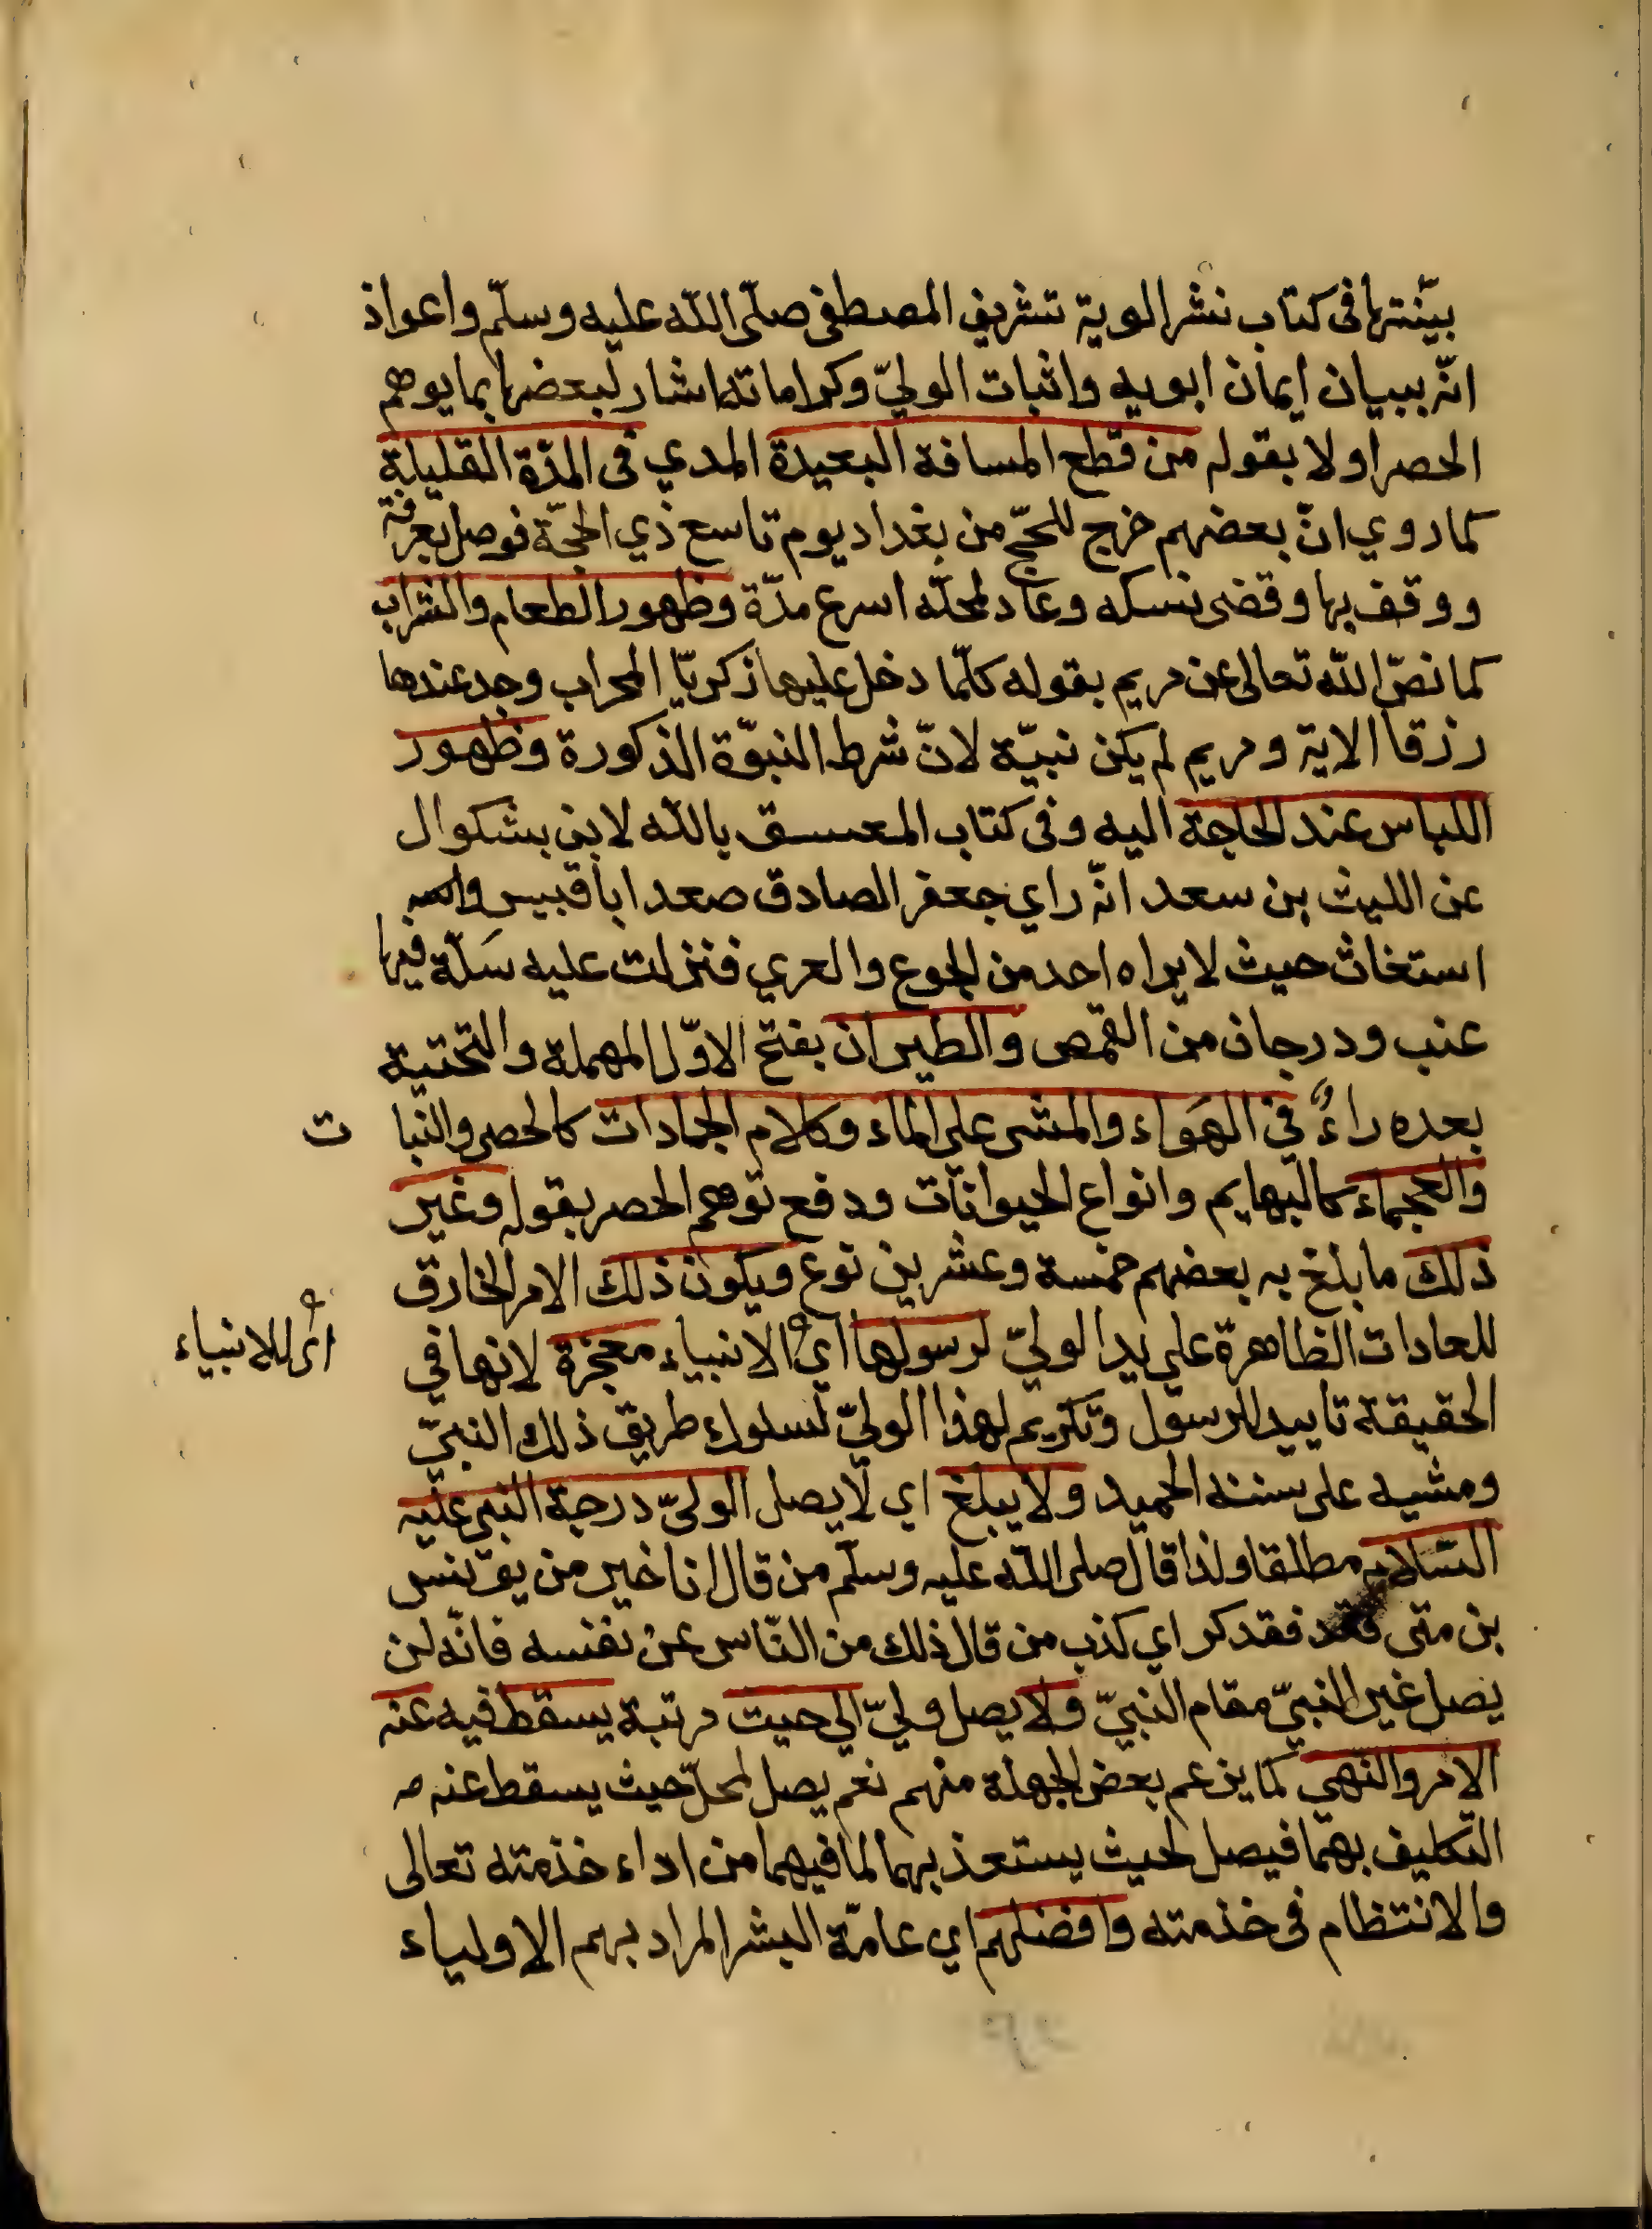 بيّنتها فى كتاب نشر الوية تشريف المصطفى صلّى اللّه عليه وسلّم واعواذ
انّه ببيان ايمان ابويه واثبات الوليّ وكراماته اشار لبعضها بما يوهم
الحصر اولا بقوله من قطع المسافة البعيدة المدي فى المدّة القليلة
كما روي انّ بعضهم خرج للحجّ من بغداد يوم تاسع ذي الحجّة فوصل بعرفة
ووقف بها وقضى نسكه وعاد لمحلّه اسرع مدّة وظهور الطعام والشراب
كما نصّ اللّه تعالى عن مريم بقوله كلّما دخل عليها زكريّا المحراب وجد عندها
رزقا الاية ومريم لم يكن نبيّة لانّ شرط النبوّة الذكورة وظهور
اللباس عند الحاجة اليه وفى كتاب بالله لابن بشكوال
عن الليث بن سعد انّه راي جعفر الصادق صعد ابا قبيس
استغاث حيث لا يراه احد من الجوع والعري فنزلت عليه سَلّة فيها
عنب ودرجان من القمص والطيران بفتح الاوّل المهملة والتحتية
بعده راءٌ في الهَوَاء والمشى على الماء وكلام الجمادات كالحصى والنّبا ت
والعجماء كالبهايم وانواع الحيوانات ودفع توهم الحصر بقوله وغير
ذلك ما بلغ به بعضهم خمسة وعشرين نوع ويكون ذلك الامر الخارق
للعادات الظاهرة على يد الوليّ لرسولها اي الانبياء معجزة لانها في
اى للانبياء
الحقيقة تاييد للرسول وتكريم لهذا الوليّ لسلوك طريق ذلك النبيّ
ومشيه على سننه الحميد ولا يبلغ اي لا يصل الوليّ درجة النبي عليه
السّلام مطلقا ولذا قال صلى اللّه عليه وسلّم من قال انا خير من يونس
بن متى فقد كر اي كذب من قال ذلك من النّاس عن نفسه فانّه لن
يصل غير النبيّ مقام النبيّ ولا يصل وليّ الي حيت مرتبة يسقط فيه عنه
الامر والنهي كما يزعم بعض الجهلة منهم نعم يصل لمحلّ حيث يسقط عنه
التكليف بهما فيصل لحيث يستعذ بهما لما فيهما من اداء خذمته تعالى
والانتظام فى خذمته وافضلهم اي عامّة البشر المراد بهم الاولياء